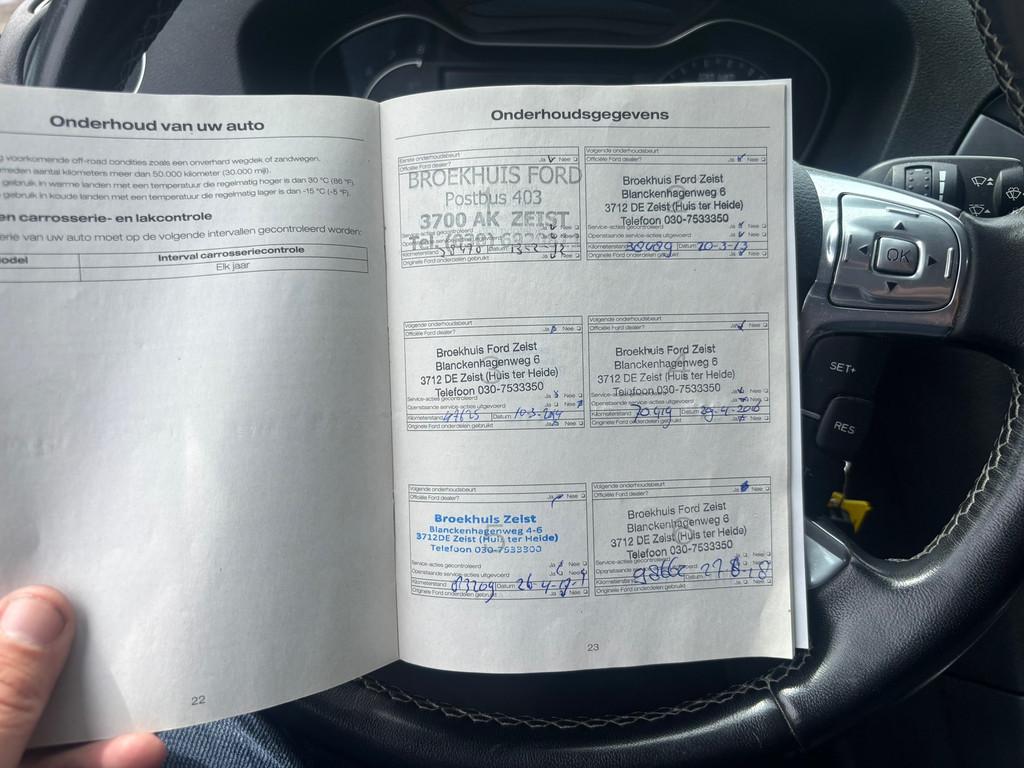 Onderhoud van uw auto
voorkomende off-road condities zoals een onverhard wegdek of zandwegen.
aantal kilometers meer dan 50.000 kilometer (30.000 mijl).
gebruik in warme landen met een temperatuur die regelmatig hoger is dan 30 °C (86 °F).
gebruik in koude landen met een temperatuur die regelmatig lager is dan -15 °C (-5 °F).
en carrosserie- en lakcontrole
van uw auto moet op de volgende intervallen gecontroleerd worden:
Interval carrosseriecontrole
Elk jaar
22
Onderhoudsgegevens
Eerste onderhoudsbeurt Ja Nee
Officiële Ford dealer?
BROEKHUIS FORD
Postbus 403
3700 AK ZEIST
Kilometerstand
Originele Ford onderdelen gebruikt Ja Nee
Volgende onderhoudsbeurt
Officiële Ford dealer? Ja Nee
Broekhuis Ford Zeist
Blanckenhagenweg 6
3712 DE Zeist (Huis ter Heide)
Telefoon 030-7533350
Service-acties gecontroleerd Ja Nee
Openstaande service-acties uitgevoerd Ja Nee
Kilometerstand 38489 Datum 20-3-13
Originele Ford onderdelen gebruikt Ja Nee
Volgende onderhoudsbeurt
Officiële Ford dealer? Ja Nee
Broekhuis Ford Zeist
Blanckenhagenweg 6
3712 DE Zeist (Huis ter Heide)
Telefoon 030-7533350
Service-acties gecontroleerd Ja Nee
Openstaande service-acties uitgevoerd Ja Nee
Kilometerstand Datum 10-3-2014
Originele Ford onderdelen gebruikt Ja Nee
Volgende onderhoudsbeurt
Officiële Ford dealer? Ja Nee
Broekhuis Ford Zeist
Blanckenhagenweg 6
3712 DE Zeist (Huis ter Heide)
Telefoon 030-7533350
Service-acties gecontroleerd Ja Nee
Openstaande service-acties uitgevoerd Ja Nee
Kilometerstand 70419 Datum 29-4-2016
Originele Ford onderdelen gebruikt Ja Nee
Volgende onderhoudsbeurt
Officiële Ford dealer? Ja Nee
Broekhuis Zeist
Blanckenhagenweg 4-6
3712DE Zeist (Huis ter Heide)
Telefoon 030-7533300
Service-acties gecontroleerd Ja Nee
Openstaande service-acties uitgevoerd Ja Nee
Kilometerstand 83209 Datum 26-4-17
Originele Ford onderdelen gebruikt Ja Nee
Volgende onderhoudsbeurt
Officiële Ford dealer? Ja Nee
Broekhuis Ford Zeist
Blanckenhagenweg 6
3712 DE Zeist (Huis ter Heide)
Telefoon 030-7533350
Service-acties gecontroleerd Ja Nee
Openstaande service-acties uitgevoerd Ja Nee
Kilometerstand Datum
Originele Ford onderdelen gebruikt Ja Nee
23
OK
SET+
RES